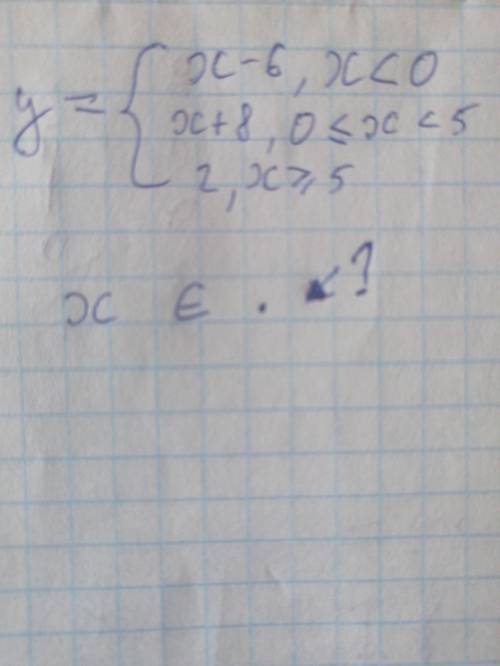 y = { x-6, x<0
x+8, 0≤x<5
2, x≥5
x ∈ . ?